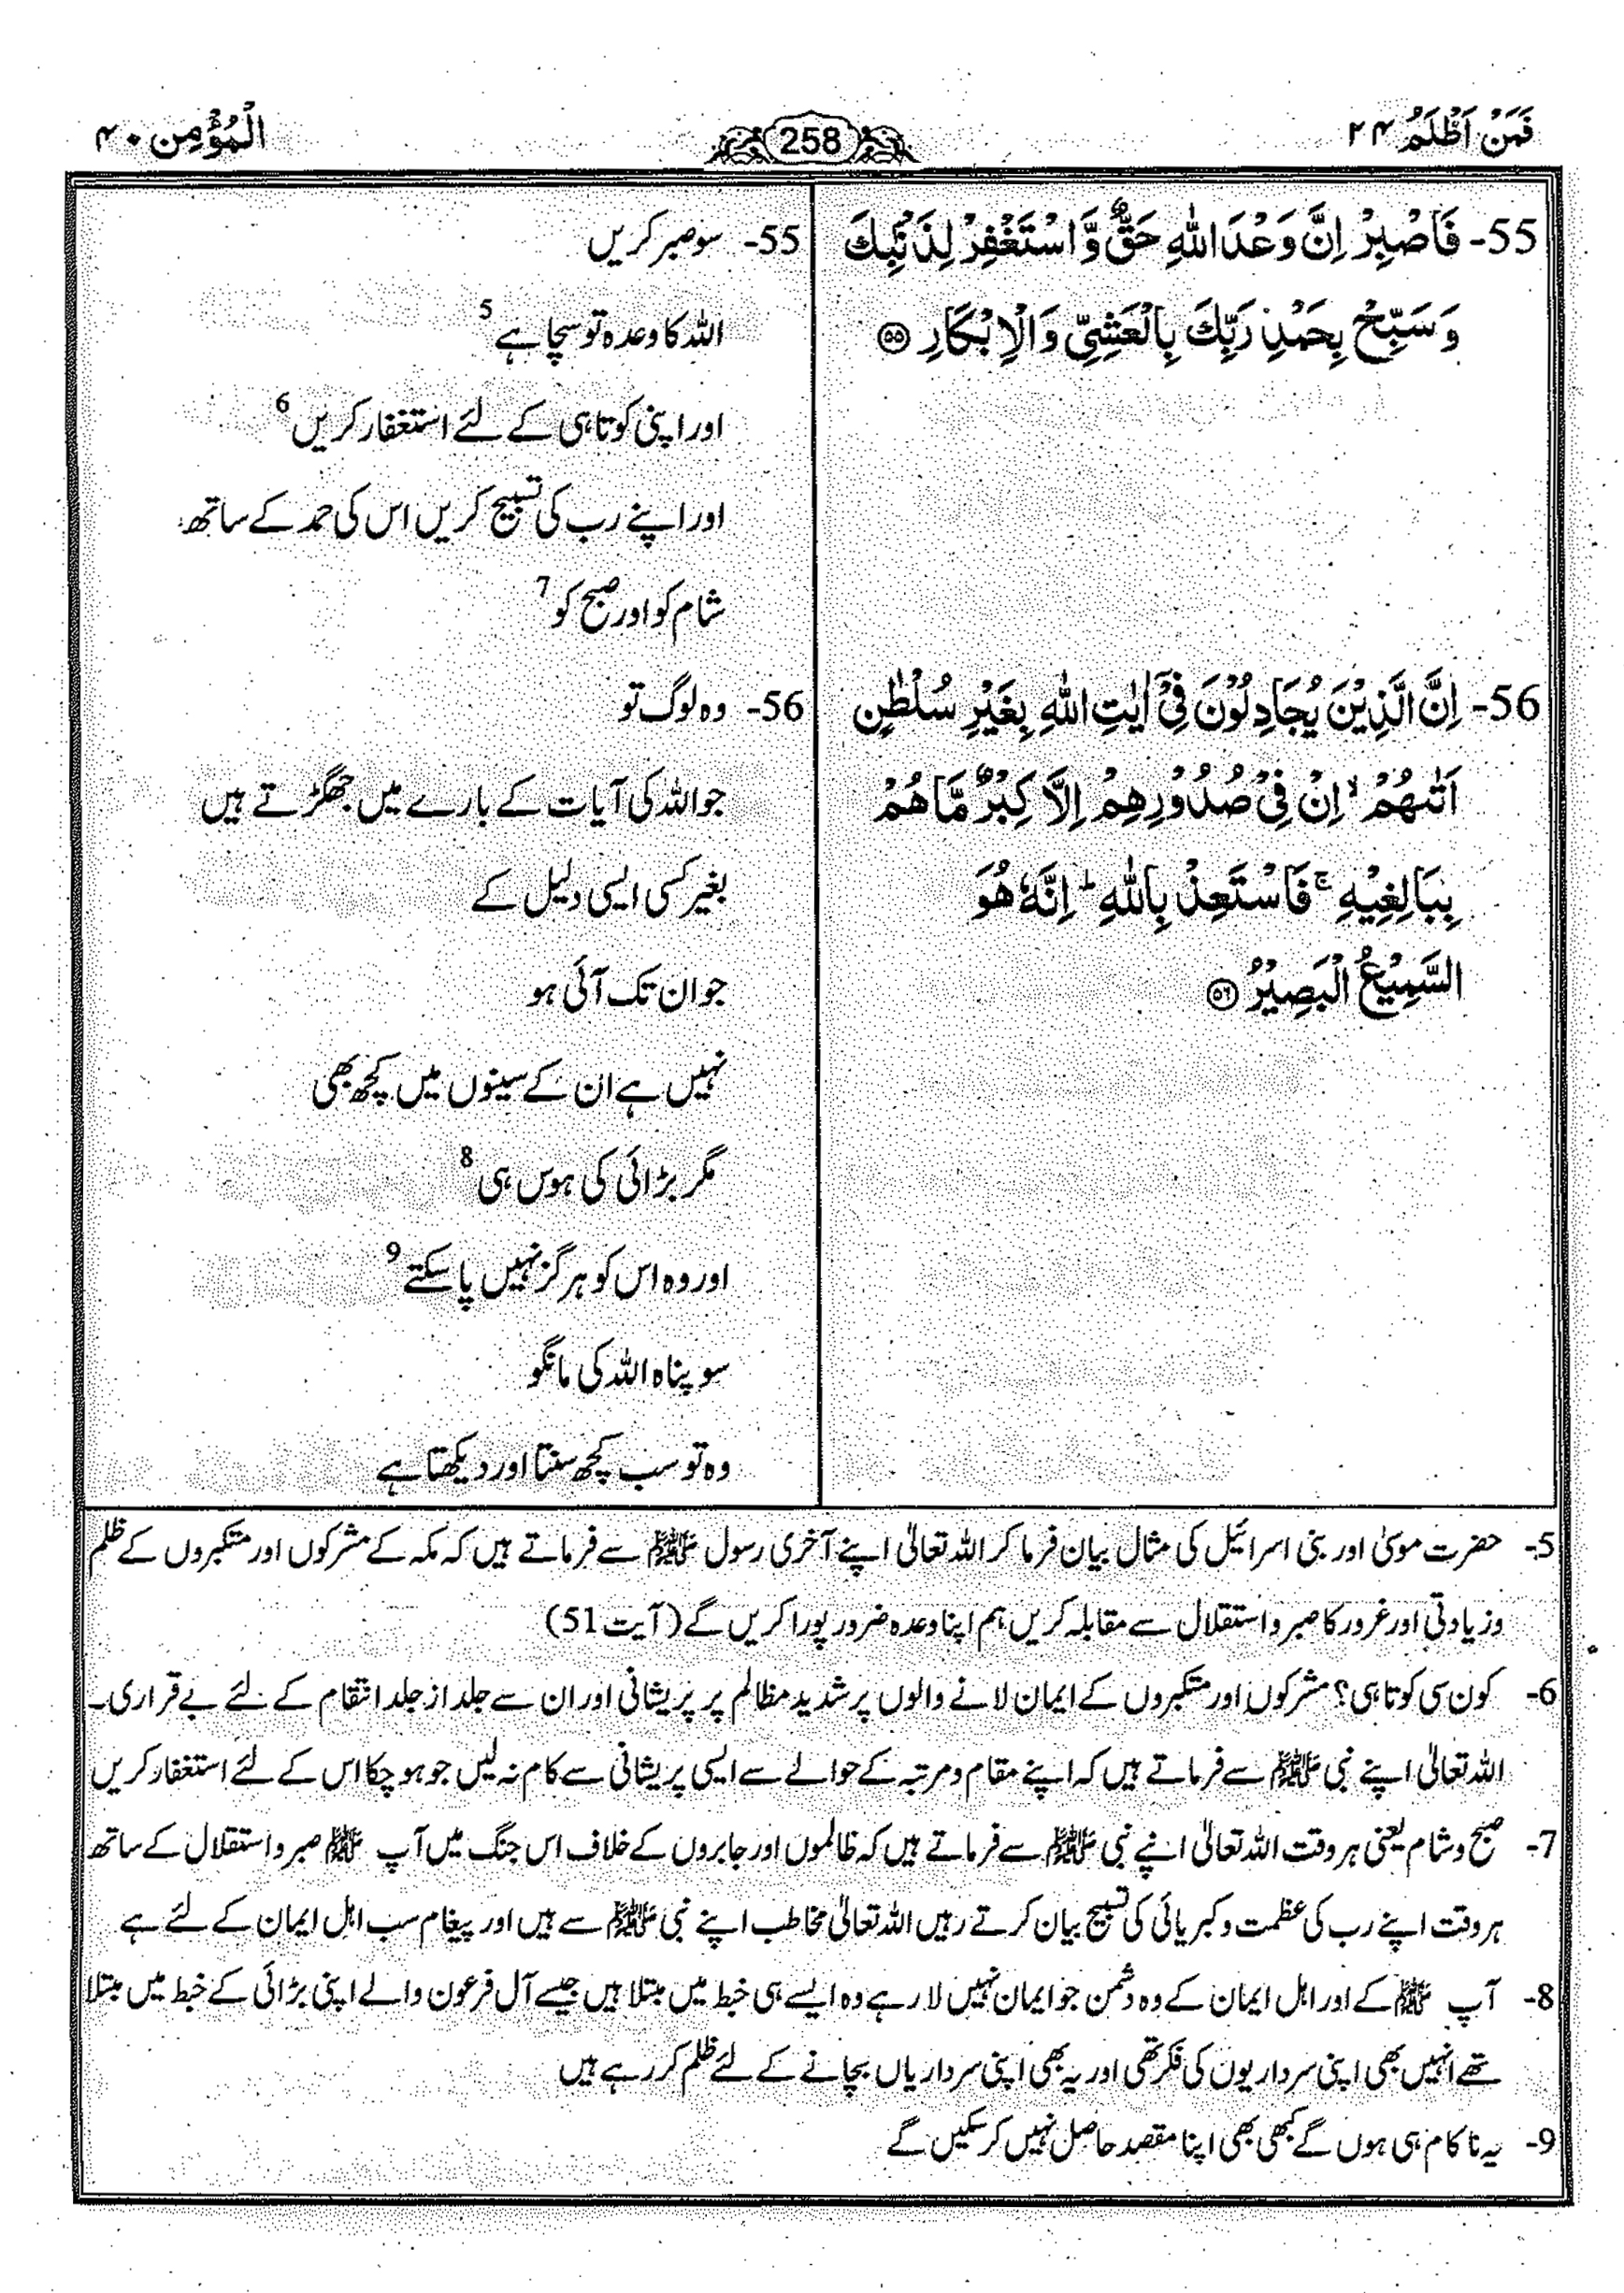 فَمَنْ اَظْلَمُ ۲۴
258
الْمُؤْمِن ۴۰
55- فَاصْبِرْ اِنَّ وَعْدَ اللّٰهِ حَقٌّ وَّاسْتَغْفِرْ لِذَنْۢبِكَ
وَسَبِّحْ بِحَمْدِ رَبِّكَ بِالْعَشِيِّ وَالْاِبْكَارِ ۵۵
56- اِنَّ الَّذِيْنَ يُجَادِلُوْنَ فِيْۤ اٰيٰتِ اللّٰهِ بِغَيْرِ سُلْطٰنٍ
اَتٰىهُمْ ۙ اِنْ فِيْ صُدُوْرِهِمْ اِلَّا كِبْرٌ مَّا هُمْ
بِبَالِغِيْهِ ۚ فَاسْتَعِذْ بِاللّٰهِ ؕ اِنَّهٗ هُوَ
السَّمِيْعُ الْبَصِيْرُ ۵۶
55- سو صبر کریں
اللہ کا وعدہ تو سچا ہے 5
اور اپنی کوتاہی کے لئے استغفار کریں 6
اور اپنے رب کی تسبیح کریں اس کی حمد کے ساتھ
شام کو اور صبح کو 7
56- وہ لوگ تو
جو اللہ کی آیات کے بارے میں جھگڑتے ہیں
بغیر کسی ایسی دلیل کے
جو ان تک آئی ہو
نہیں ہے ان کے سینوں میں کچھ بھی
مگر بڑائی کی ہوس ہی 8
اور وہ اس کو ہرگز نہیں پا سکتے 9
سو پناہ اللہ کی مانگو
وہ تو سب کچھ سنتا اور دیکھتا ہے
5- حضرت موسیٰ اور بنی اسرائیل کی مثال بیان فرما کر اللہ تعالیٰ اپنے آخری رسول ﷺ سے فرماتے ہیں کہ مکہ کے مشرکوں اور متکبروں کے ظلم
و زیادتی اور غرور کا صبر و استقلال سے مقابلہ کریں ہم اپنا وعدہ ضرور پورا کریں گے (آیت 51)
6- کون سی کوتاہی؟ مشرکوں اور متکبروں کے ایمان لانے والوں پر شدید مظالم پر پریشانی اور ان سے جلد از جلد انتقام کے لئے بے قراری۔
اللہ تعالیٰ اپنے نبی ﷺ سے فرماتے ہیں کہ اپنے مقام و مرتبہ کے حوالے سے ایسی پریشانی سے کام نہ لیں جو ہو چکا اس کے لئے استغفار کریں
7- صبح و شام یعنی ہر وقت اللہ تعالیٰ اپنے نبی ﷺ سے فرماتے ہیں کہ ظالموں اور جابروں کے خلاف اس جنگ میں آپ ﷺ صبر و استقلال کے ساتھ
ہر وقت اپنے رب کی عظمت و کبریائی کی تسبیح بیان کرتے رہیں اللہ تعالیٰ مخاطب اپنے نبی ﷺ سے ہیں اور پیغام سب اہل ایمان کے لئے ہے
8- آپ ﷺ کے اور اہل ایمان کے وہ دشمن جو ایمان نہیں لا رہے وہ ایسے ہی خبط میں مبتلا ہیں جیسے آل فرعون والے اپنی بڑائی کے خبط میں مبتلا
تھے انہیں بھی اپنی سرداریوں کی فکر تھی اور یہ بھی اپنی سرداریاں بچانے کے لئے ظلم کر رہے ہیں
9- یہ ناکام ہی ہوں گے کبھی بھی اپنا مقصد حاصل نہیں کر سکیں گے